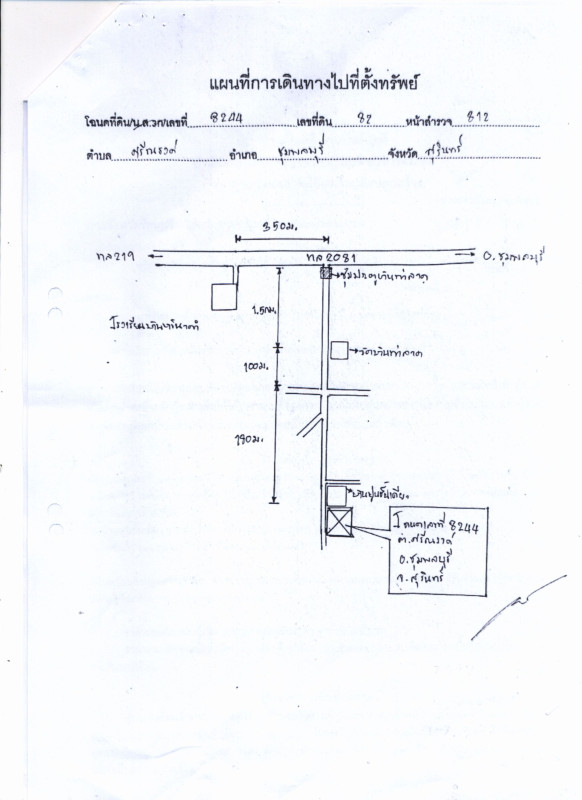 แผนที่การเดินทางไปที่ตั้งทรัพย์
โฉนดที่ดิน/น.ส.3ก/เลขที่ 8244 เลขที่ดิน 82 หน้าสำรวจ 812
ตำบล ศรีณรงค์ อำเภอ ชุมพลบุรี จังหวัด สุรินทร์
350ม.
ทล219
ทล2081
อ.ชุมพลบุรี
ซุ้มประตูบ้านท่าลาด
1.5กม.
วัดบ้านท่าลาด
100ม.
190ม.
บ้านปูนชั้นเดียว
โฉนดเลขที่ 8244
ต.ศรีณรงค์
อ.ชุมพลบุรี
จ.สุรินทร์